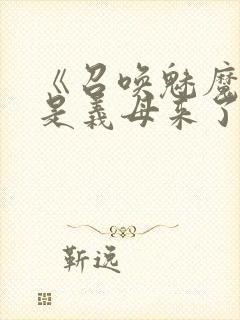 《召唤魅魔
是義母来了
靳逸